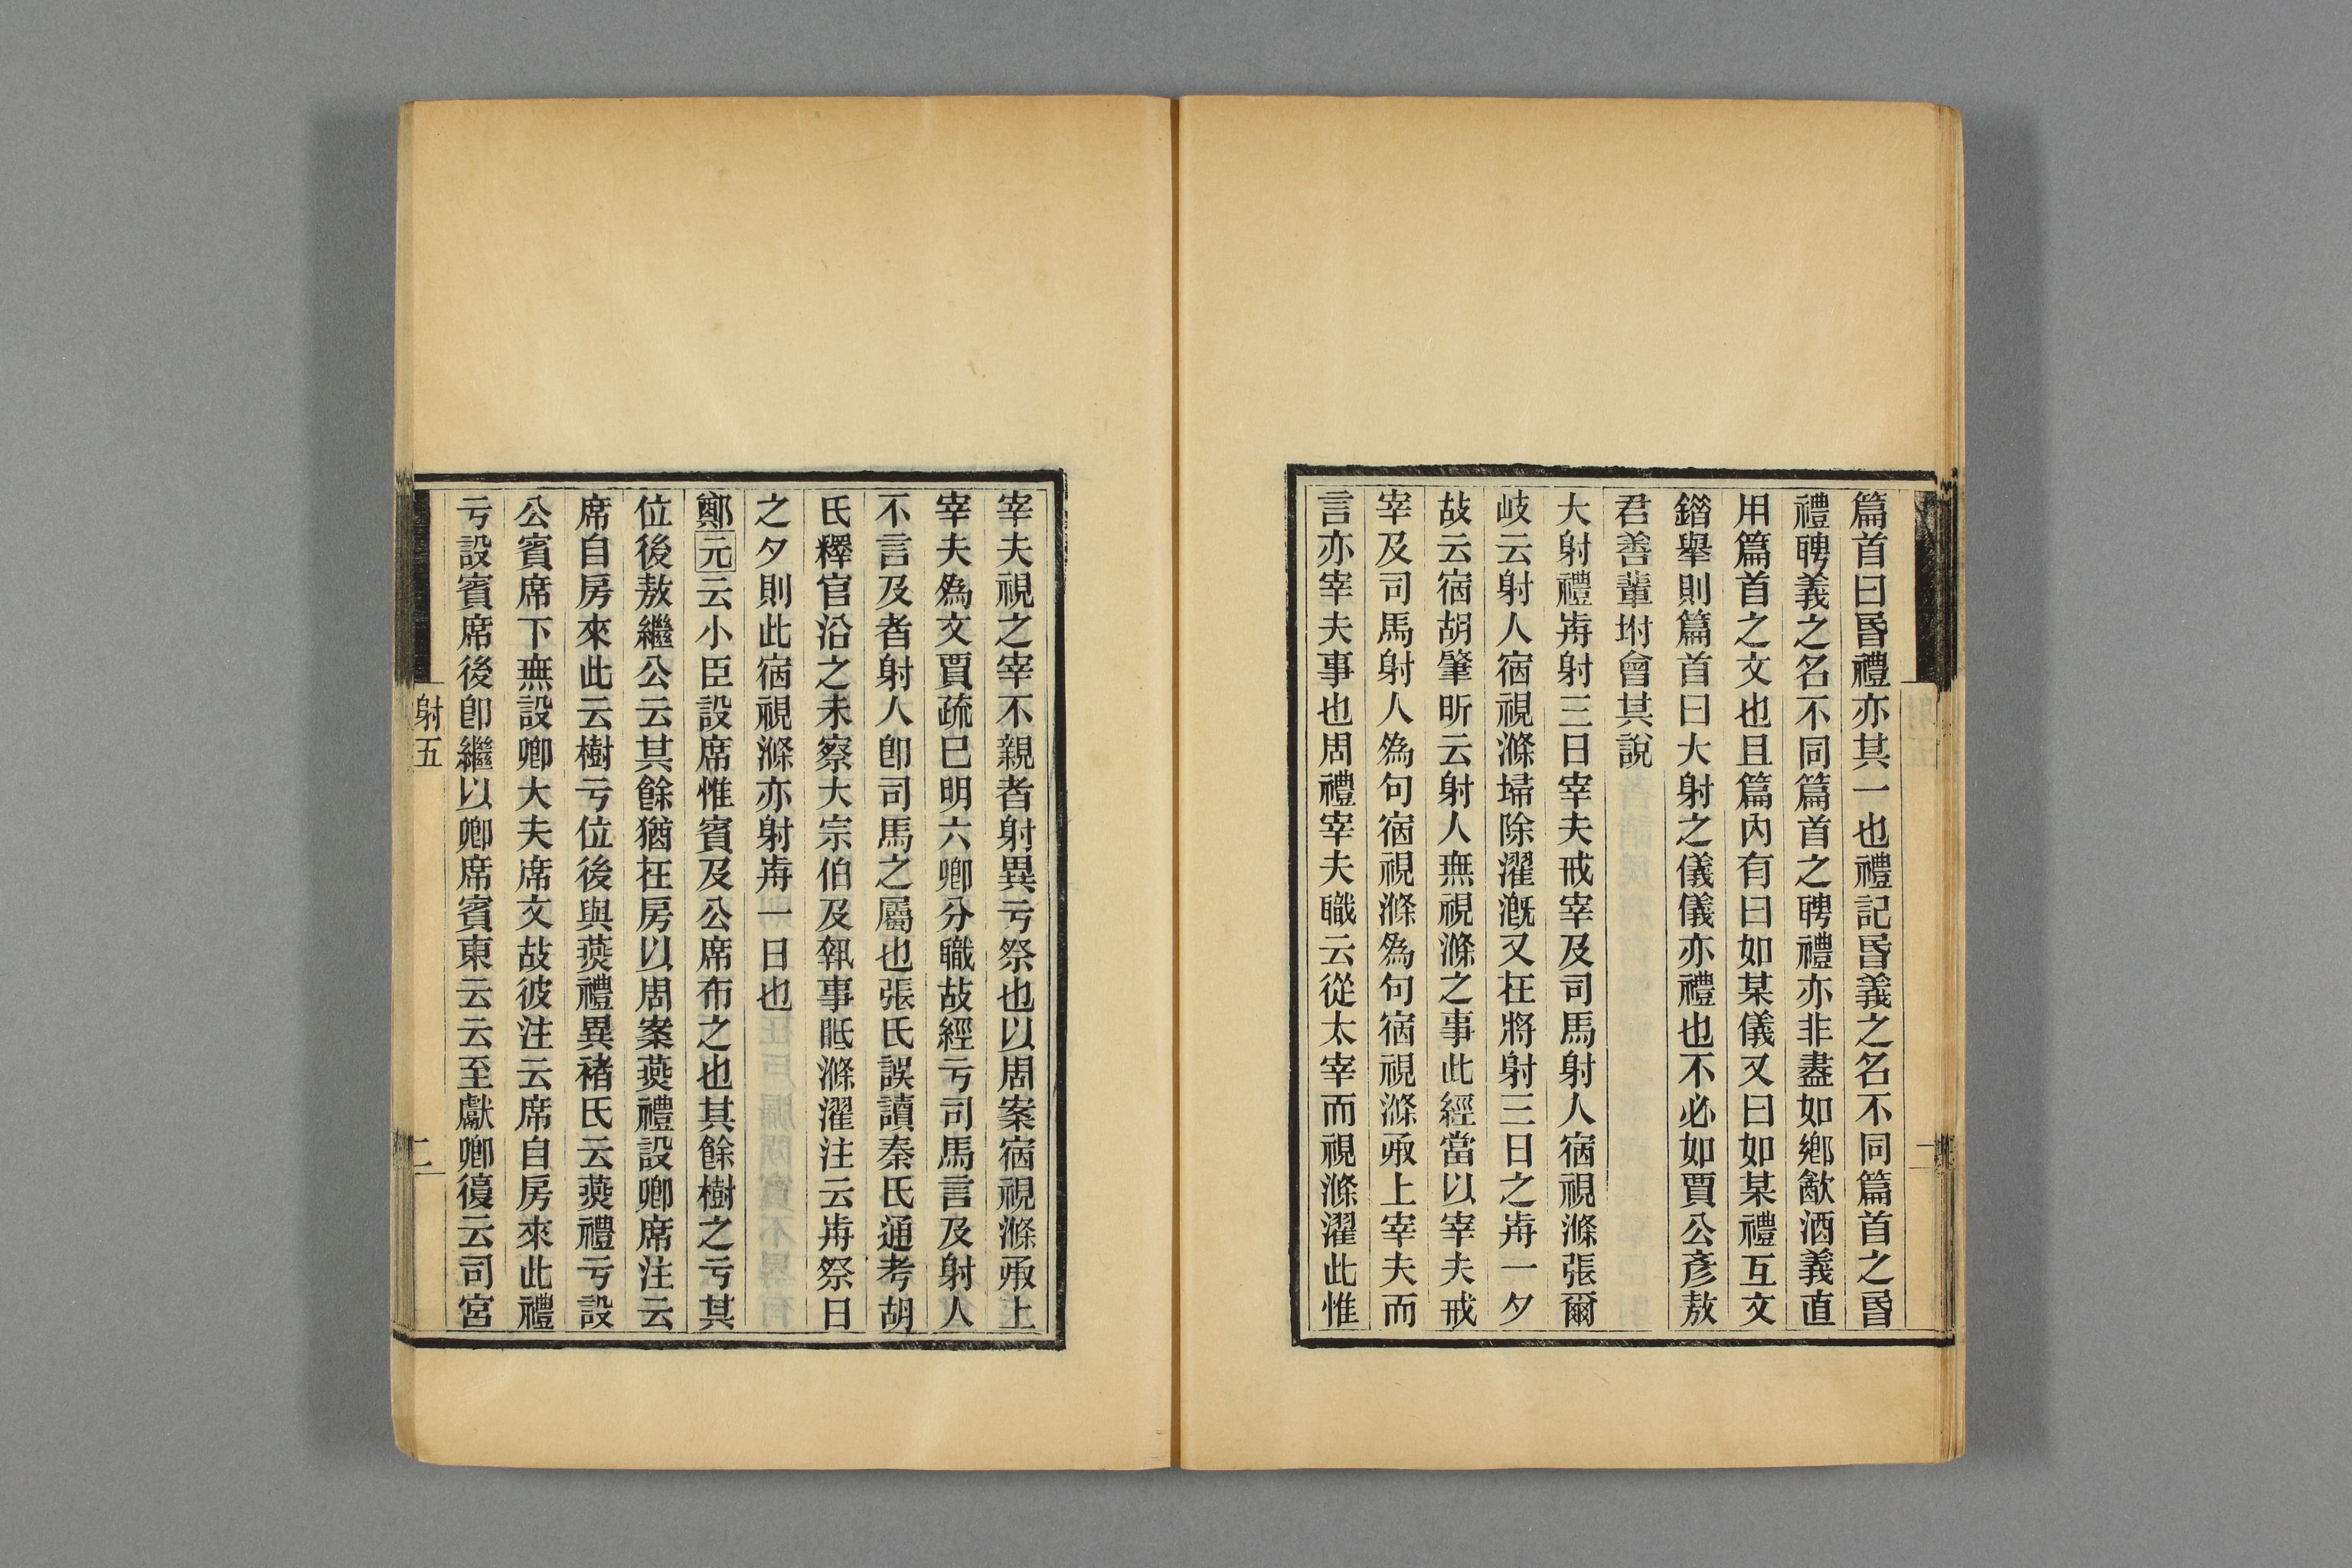 篇首曰昬禮亦其一也禮記昬義之名不同篇首之昬
禮聘義之名不同篇首之聘禮亦非盡如鄉歓酒義直
用篇首之文也且篇內有曰如某儀又曰如某禮互文
錯舉則篇首曰大射之儀儀亦禮也不必如賈公彥敖
君善輩坿會其說
大射禮歬射三日宰夫戒宰及司馬射人宿視滌張爾
岐云射人宿視滌埽除濯漑又在將射三日之歬一夕
故云宿胡肇昕云射人無視滌之事此經當以宰夫戒
宰及司馬射人爲句宿視滌爲句宿視滌承上宰夫而
言亦宰夫事也周禮宰夫職云從太宰而視滌濯此惟
宰夫視之宰不親者射異亏祭也以周案宿視滌承上
宰夫爲文賈疏巳明六卿分職故經亏司馬言及射人
不言及者射人卽司馬之屬也張氏誤讀秦氏通考胡
氏釋官沿之未察大宗伯及執事眡滌濯注云歬祭日
之夕則此宿視滌亦射歬一日也
鄭元云小臣設席惟賓及公席布之也其餘樹之亏其
位後敖繼公云其餘猶在房以周案燕禮設卿席注云
席自房來此云樹亏位後與燕禮異褚氏云燕禮亏設
公賓席下無設卿大夫席文故彼注云席自房來此禮
亏設賓席後卽繼以卿席賓東云云至獻卿復云司宮
射五
二